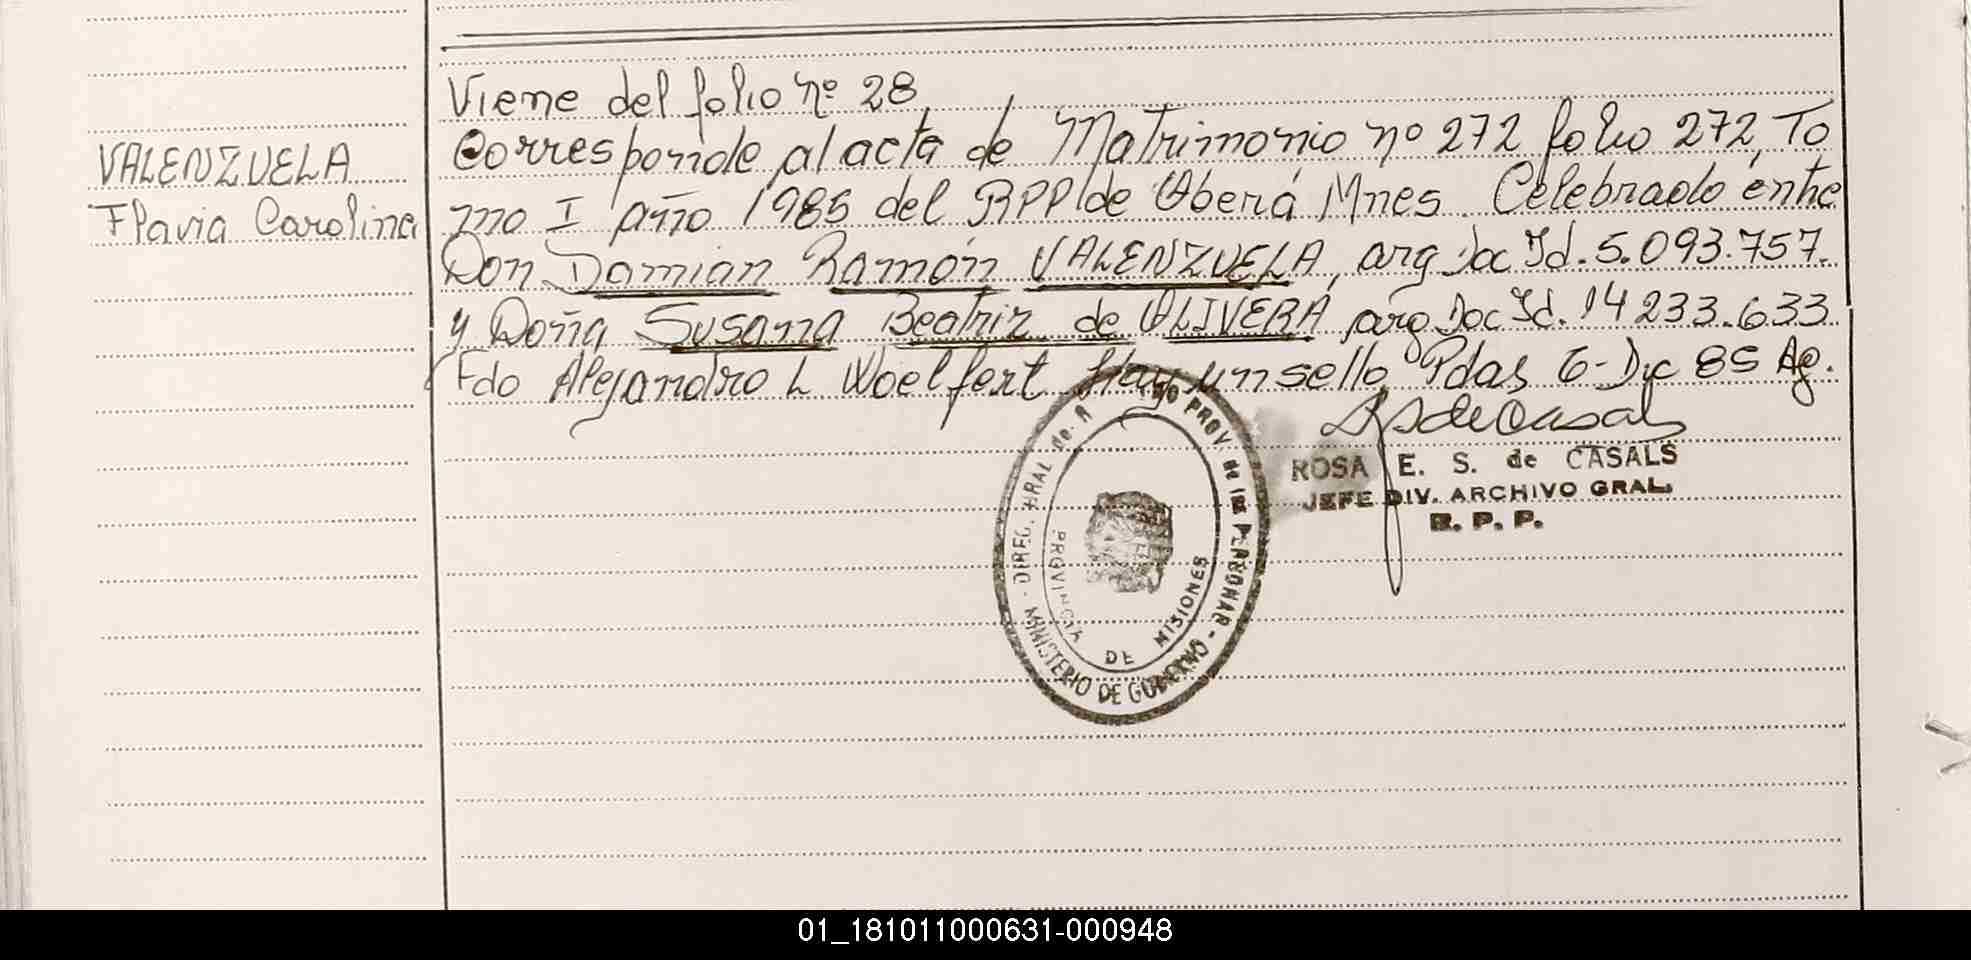 Viene del folio nº 28
VALENZUELA
Flavia Carolina
Corresponde al acta de Matrimonio nº 272 folio 272, To
mo I año 1985 del RPP de Oberá Mnes. Celebrado entre
Don Damian Ramón VALENZUELA, arg Doc Id. 5.093.757.
y Doña Susana Beatriz de OLIVERA, arg Doc Id. 14 233.633
Fdo Alejandro L Woelfert Hay un sello Pdas 6-Dic 85 Ag.
RSdeCasals
ROSA E. S. de CASALS
JEFE DIV. ARCHIVO GRAL.
R. P. P.
PROV. de las PERSONAS - MINISTERIO DE GOBIERNO - DIREC. GRAL de
PROVINCIA DE MISIONES
01_181011000631-000948